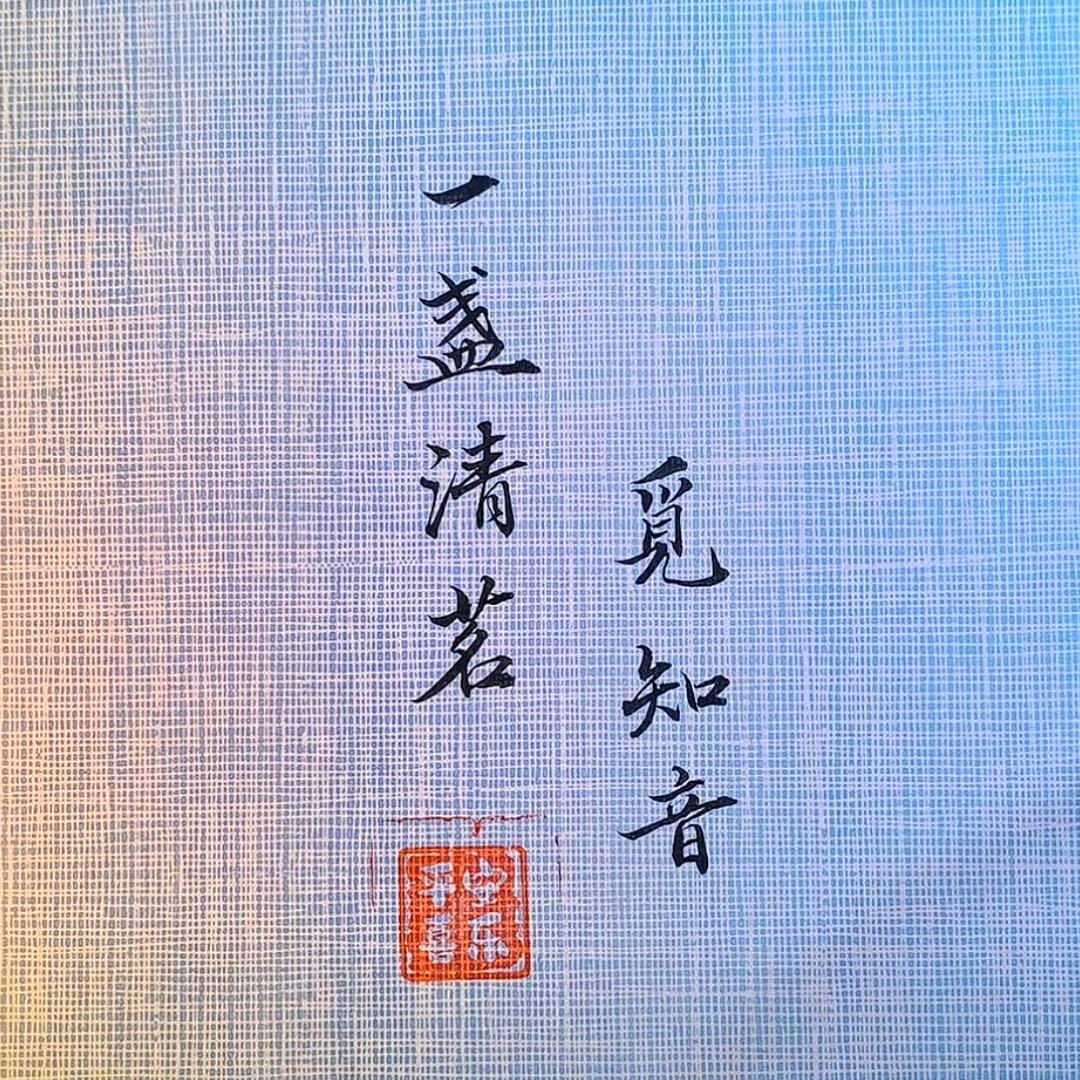 一盏清茗
覓知音
平安
喜乐